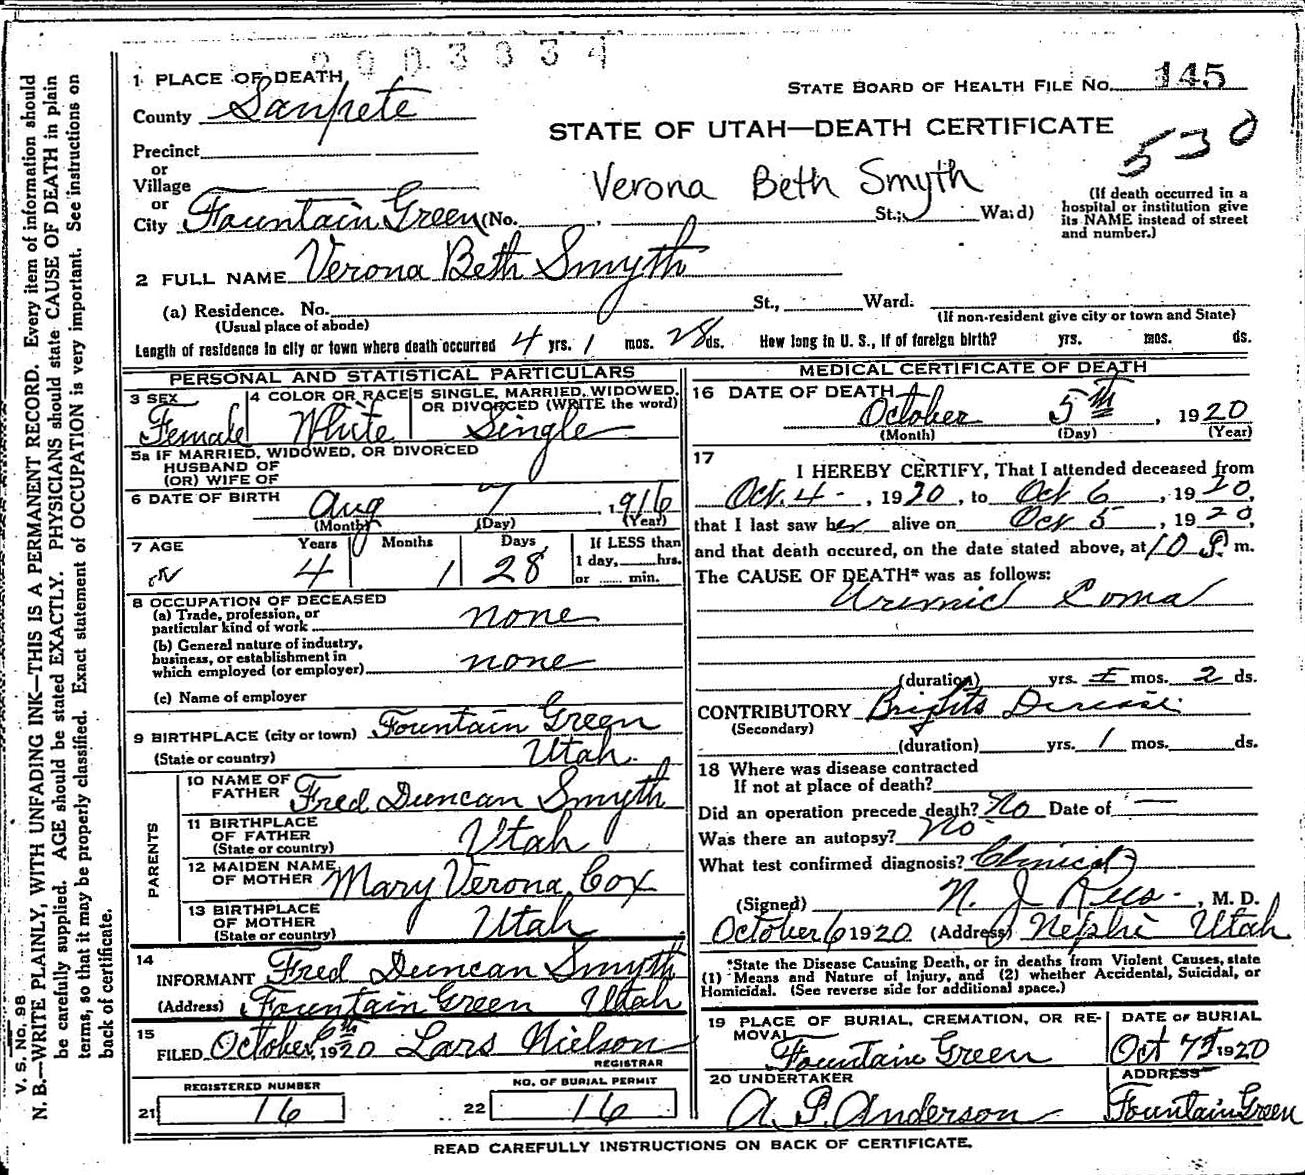 2003834
1 PLACE OF DEATH
STATE BOARD OF HEALTH FILE NO. 145
County Sanpete
STATE OF UTAH—DEATH CERTIFICATE
530
Precinct
or
Village
Verona Beth Smyth
or
City Fountain Green (No. , St.; Ward)
(If death occurred in a
hospital or institution give
its NAME instead of street
and number.)
2 FULL NAME Verona Beth Smyth
(a) Residence. No. St., Ward.
(Usual place of abode)
(If non-resident give city or town and State)
Length of residence in city or town where death occurred 4 yrs. 1 mos. 28 ds. How long in U. S., if of foreign birth? yrs. mos. ds.
PERSONAL AND STATISTICAL PARTICULARS
3 SEX
Female
4 COLOR OR RACE
White
5 SINGLE, MARRIED, WIDOWED,
OR DIVORCED (WRITE the word)
Single
5a IF MARRIED, WIDOWED, OR DIVORCED
HUSBAND OF
(OR) WIFE OF
6 DATE OF BIRTH
Aug 7, 1916
(Month) (Day) (Year)
7 AGE Years Months Days If LESS than
4 1 28 1 day, hrs.
or min.
8 OCCUPATION OF DECEASED
(a) Trade, profession, or
particular kind of work none
(b) General nature of industry,
business, or establishment in
which employed (or employer) none
(c) Name of employer
9 BIRTHPLACE (city or town) Fountain Green
(State or country) Utah
PARENTS
10 NAME OF
FATHER Fred Duncan Smyth
11 BIRTHPLACE
OF FATHER
(State or country) Utah
12 MAIDEN NAME
OF MOTHER Mary Verona Cox
13 BIRTHPLACE
OF MOTHER
(State or country) Utah
14
INFORMANT Fred Duncan Smyth
(Address) Fountain Green Utah
15
FILED October 6th, 1920 Lars Nielson
REGISTRAR
REGISTERED NUMBER
21 16
NO. OF BURIAL PERMIT
22 16
MEDICAL CERTIFICATE OF DEATH
16 DATE OF DEATH
October 5th, 1920
(Month) (Day) (Year)
17
I HEREBY CERTIFY, That I attended deceased from
Oct. 4 -, 1920, to Oct 6, 1920,
that I last saw her alive on Oct 5, 1920,
and that death occured, on the date stated above, at 10 P. m.
The CAUSE OF DEATH* was as follows:
Uremic Coma
(duration) yrs. mos. 2 ds.
CONTRIBUTORY Brights Disease
(Secondary)
(duration) yrs. 1 mos. ds.
18 Where was disease contracted
If not at place of death?
Did an operation precede death? No Date of —
Was there an autopsy? No
What test confirmed diagnosis? Clinical
(Signed) N. J. Rees -, M. D.
October 6 1920 (Address) Nephi Utah
*State the Disease Causing Death, or in deaths from Violent Causes, state
(1) Means and Nature of Injury, and (2) whether Accidental, Suicidal, or
Homicidal. (See reverse side for additional space.)
19 PLACE OF BURIAL, CREMATION, OR RE-
MOVAL
Fountain Green
DATE OF BURIAL
Oct 7th 1920
20 UNDERTAKER
A. P. Anderson
ADDRESS
Fountain Green
READ CAREFULLY INSTRUCTIONS ON BACK OF CERTIFICATE.
V. S. No. 98
N. B.—WRITE PLAINLY, WITH UNFADING INK—THIS IS A PERMANENT RECORD. Every item of information should
be carefully supplied. AGE should be stated EXACTLY. PHYSICIANS should state CAUSE OF DEATH in plain
terms, so that it may be properly classified. Exact statement of OCCUPATION is very important. See instructions on
back of certificate.